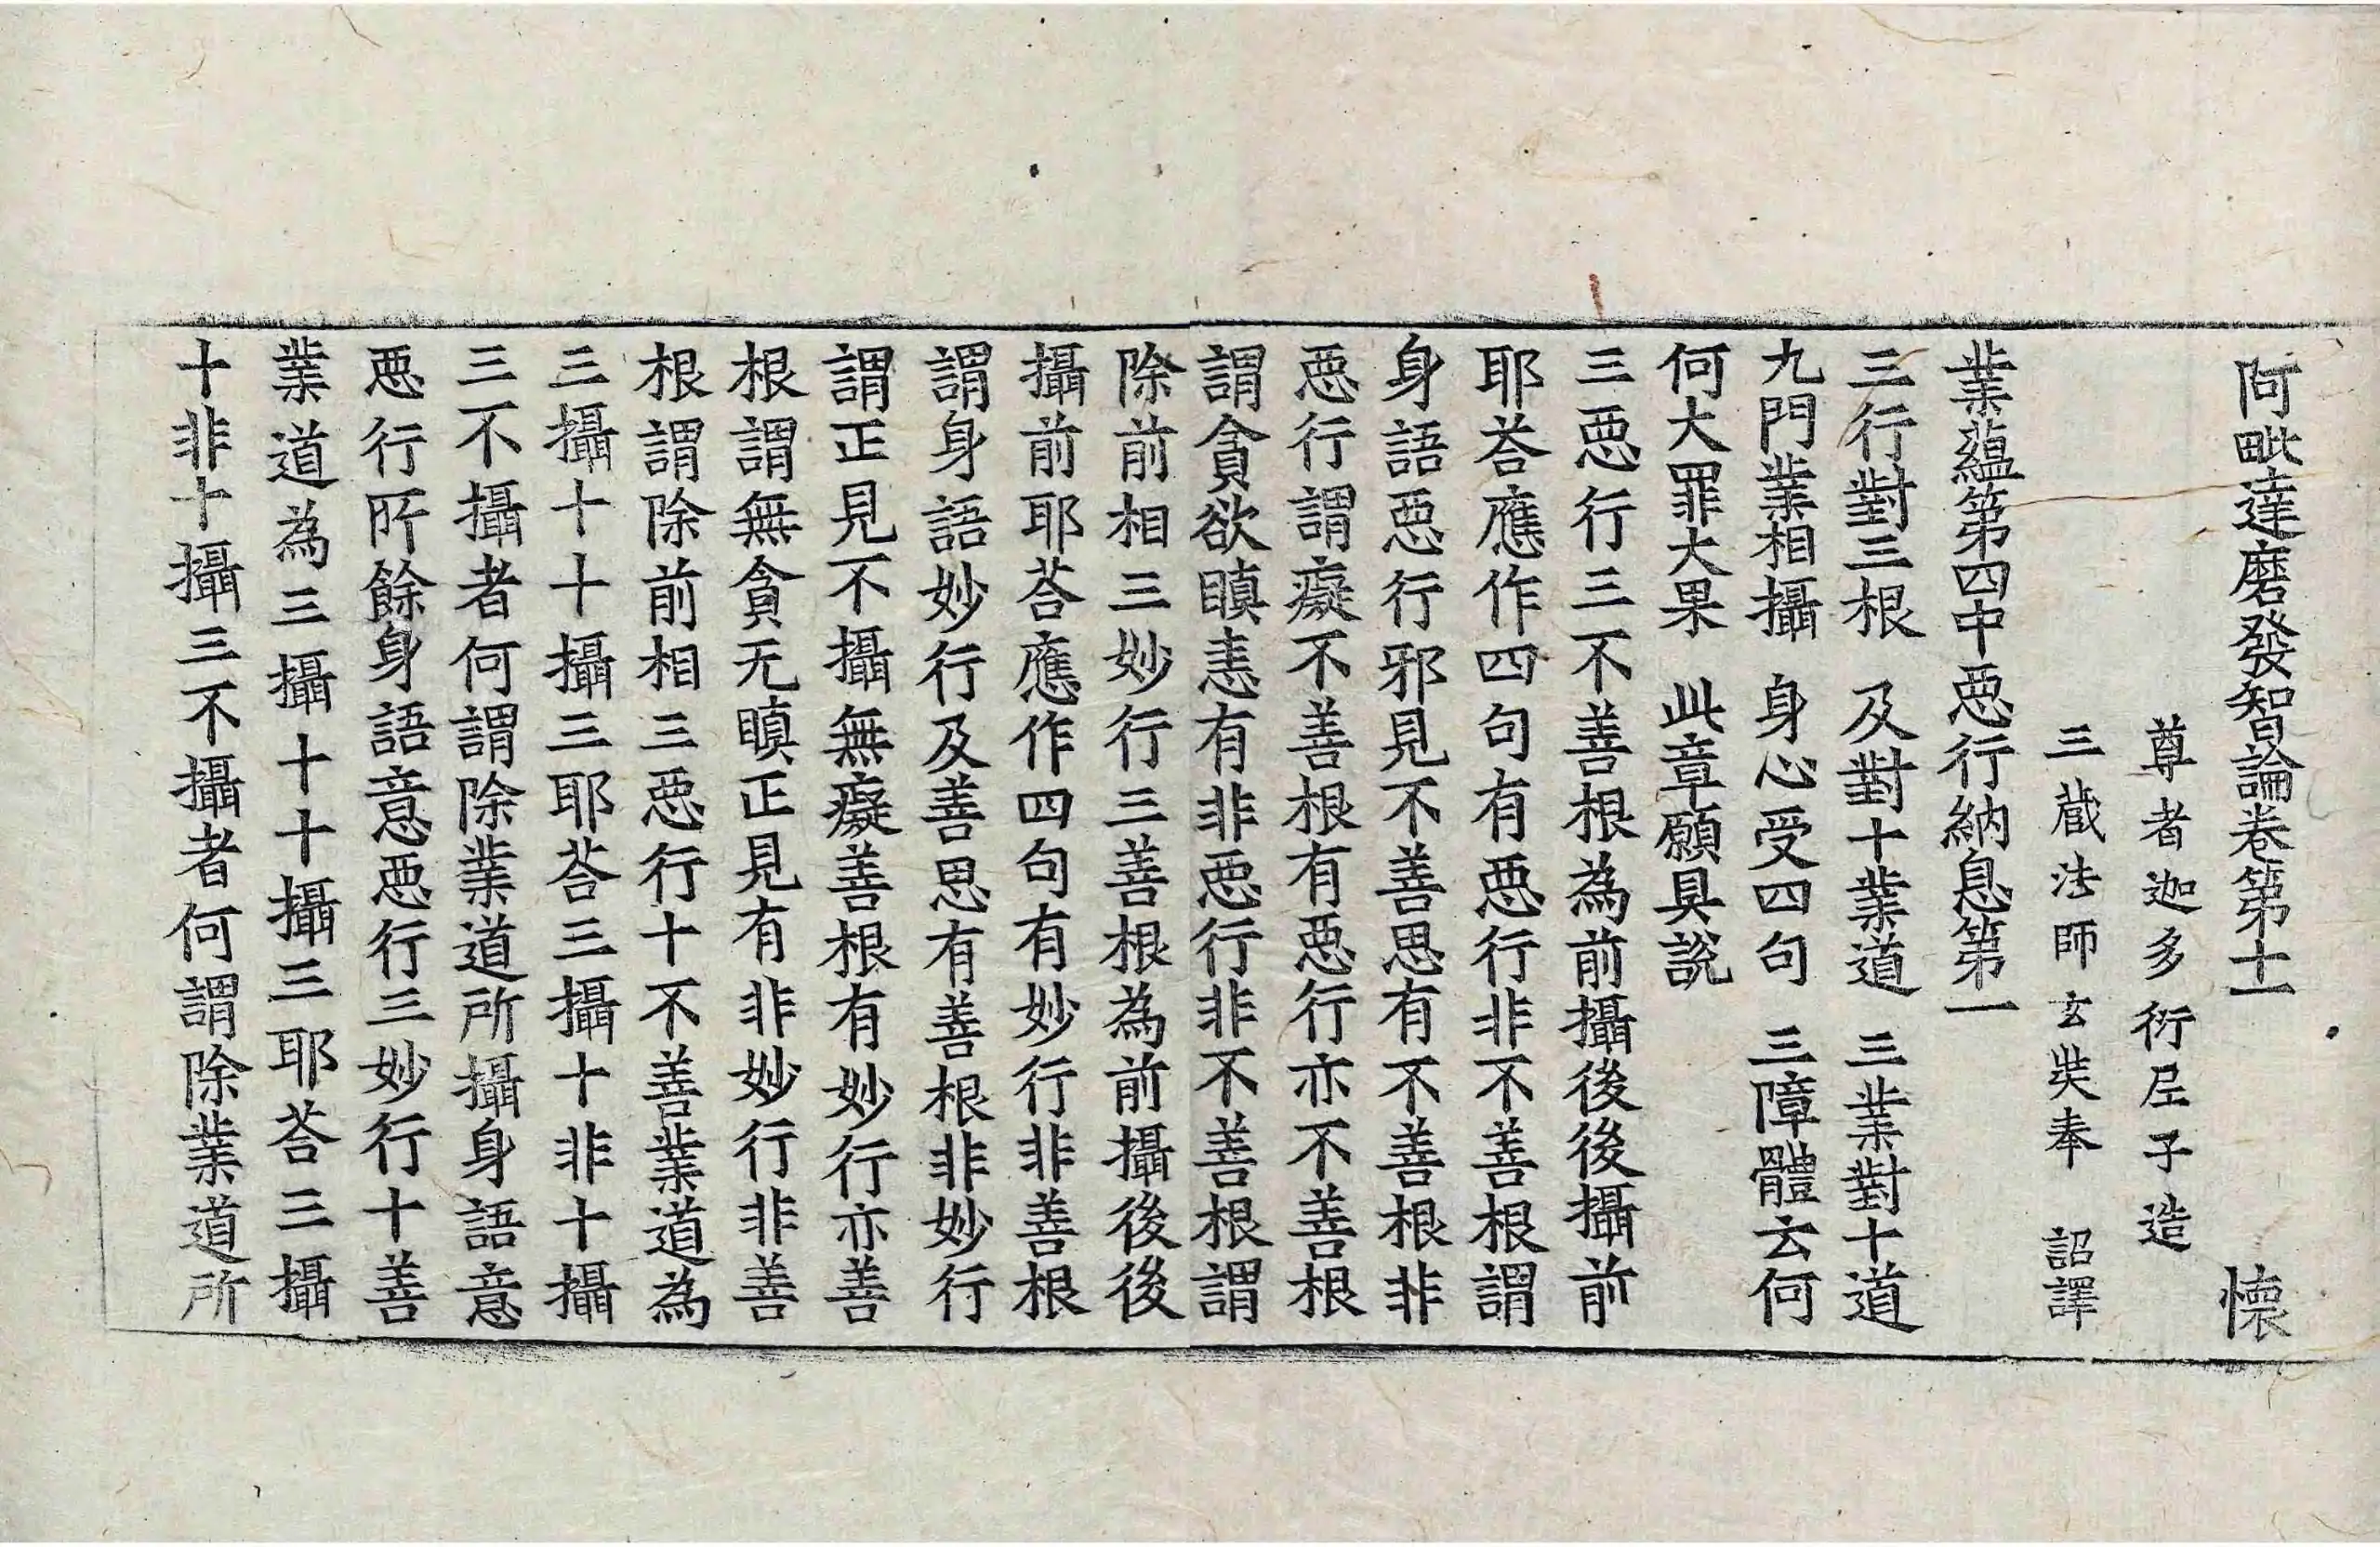 阿毗達磨發智論卷第十一 懷
尊者迦多衍𡰱子造
三藏法師玄奘奉 詔譯
業蘊第四中惡行納息第一
三行對三根 及對十業道 三業對十道
九門業相攝 身心受四句 三障體云何
何大罪大果 此章願具說
三惡行三不善根為前攝後後攝前
耶荅應作四句有惡行非不善根謂
身語惡行邪見不善思有不善根非
惡行謂癡不善根有惡行亦不善根
謂貪欲瞋恚有非惡行非不善根謂
除前相三妙行三善根為前攝後後
攝前耶荅應作四句有妙行非善根
謂身語妙行及善思有善根非妙行
謂正見不攝無癡善根有妙行亦善
根謂無貪无瞋正見有非妙行非善
根謂除前相三惡行十不善業道為
三攝十十攝三耶荅三攝十非十攝
三不攝者何謂除業道所攝身語意
惡行所餘身語意惡行三妙行十善
業道為三攝十十攝三耶荅三攝
十非十攝三不攝者何謂除業道所